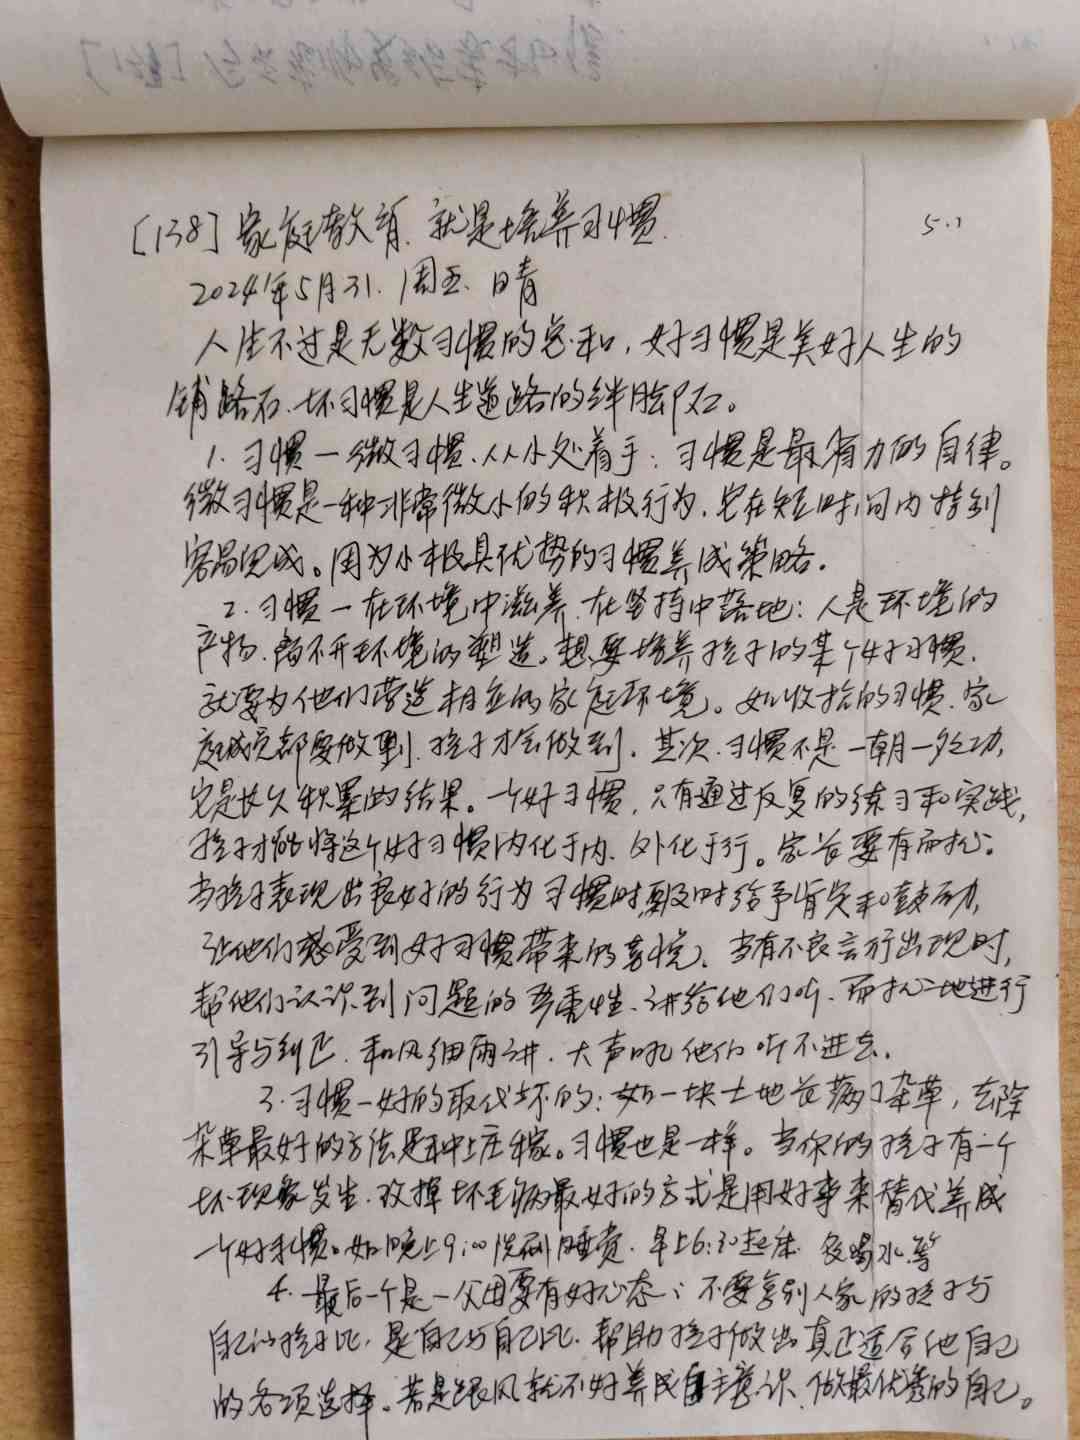 [138] 家庭教育.就是培养习惯. 5.1
2024年5月31.周五.日青
人生不过是无数习惯的总和,好习惯是美好人生的
铺路石.坏习惯是人生道路的绊脚石。
1.习惯一微习惯.从小处着手:习惯是最有力的自律。
微习惯是一种非常微小的积极行为.它在短时间内特别
容易完成。因为小极具优势的习惯养成策略.
2.习惯一在环境中滋养.在坚持中落地:人是环境的
产物.离不开环境的塑造。想要培养孩子的某个好习惯.
就要为他们营造相应的家庭环境。如收拾的习惯.家
庭成员都要做到.孩子才会做到.其次.习惯不是一朝一夕之功,
它是长久积累的结果。一个好习惯,只有通过反复的练习和实践,
孩子才能将这个好习惯内化于内、外化于行。家长要有耐心。
当孩子表现出良好的行为习惯时要及时给予肯定和鼓励,
让他们感受到好习惯带来的喜悦。当有不良言行出现时,
帮他们认识到问题的严重性.讲给他们听.耐心地进行
引导与纠正.和风细雨讲.大声吼他们听不进去.
3.习惯一好的取代坏的:如一块土地长满了杂草,去除
杂草最好的方法是种上庄稼。习惯也是一样。当你的孩子有一个
坏现象发生.改掉坏毛病最好的方式是用好事来替代养成
一个好习惯。如晚上9:00洗刷睡觉.早上6:30起床 喝水.等
4.最后一个是一父母要有好心态:不要拿别人家的孩子与
自己的孩子比,是自己与自己比.帮助孩子做出真正适合他自己
的各项选择。若是跟风就不好养成自主意识.做最优秀的自己。